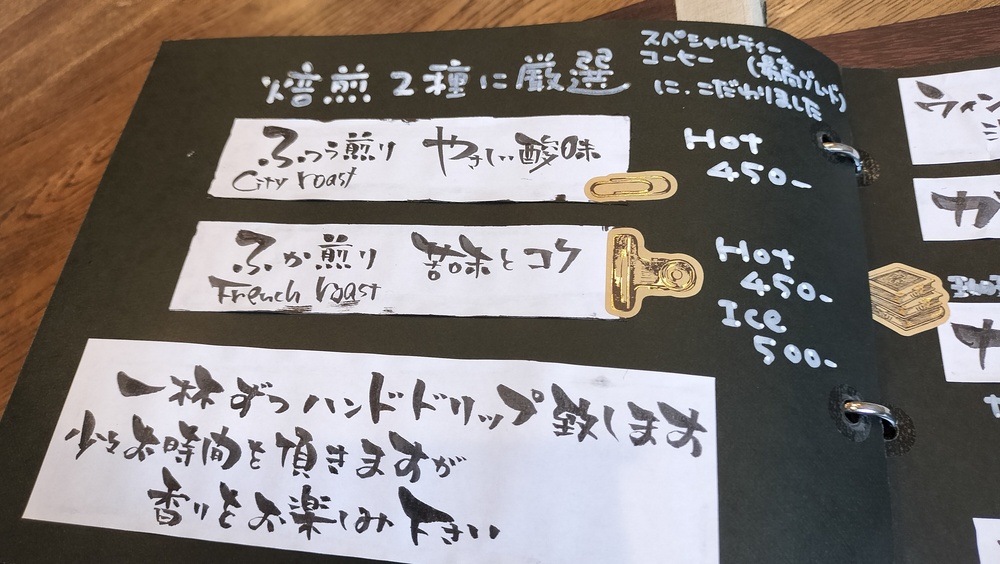 焙煎2種に厳選
スペシャルティー
コーヒー(最高グレード)
に、こだわりました
ふつう煎り やさしい酸味
City roast
Hot
450-
ふか煎り 苦味とコク
French roast
Hot
450-
Ice
500-
一杯ずつハンドドリップ致します
少々お時間を頂きますが
香りをお楽しみ下さい
ウィン